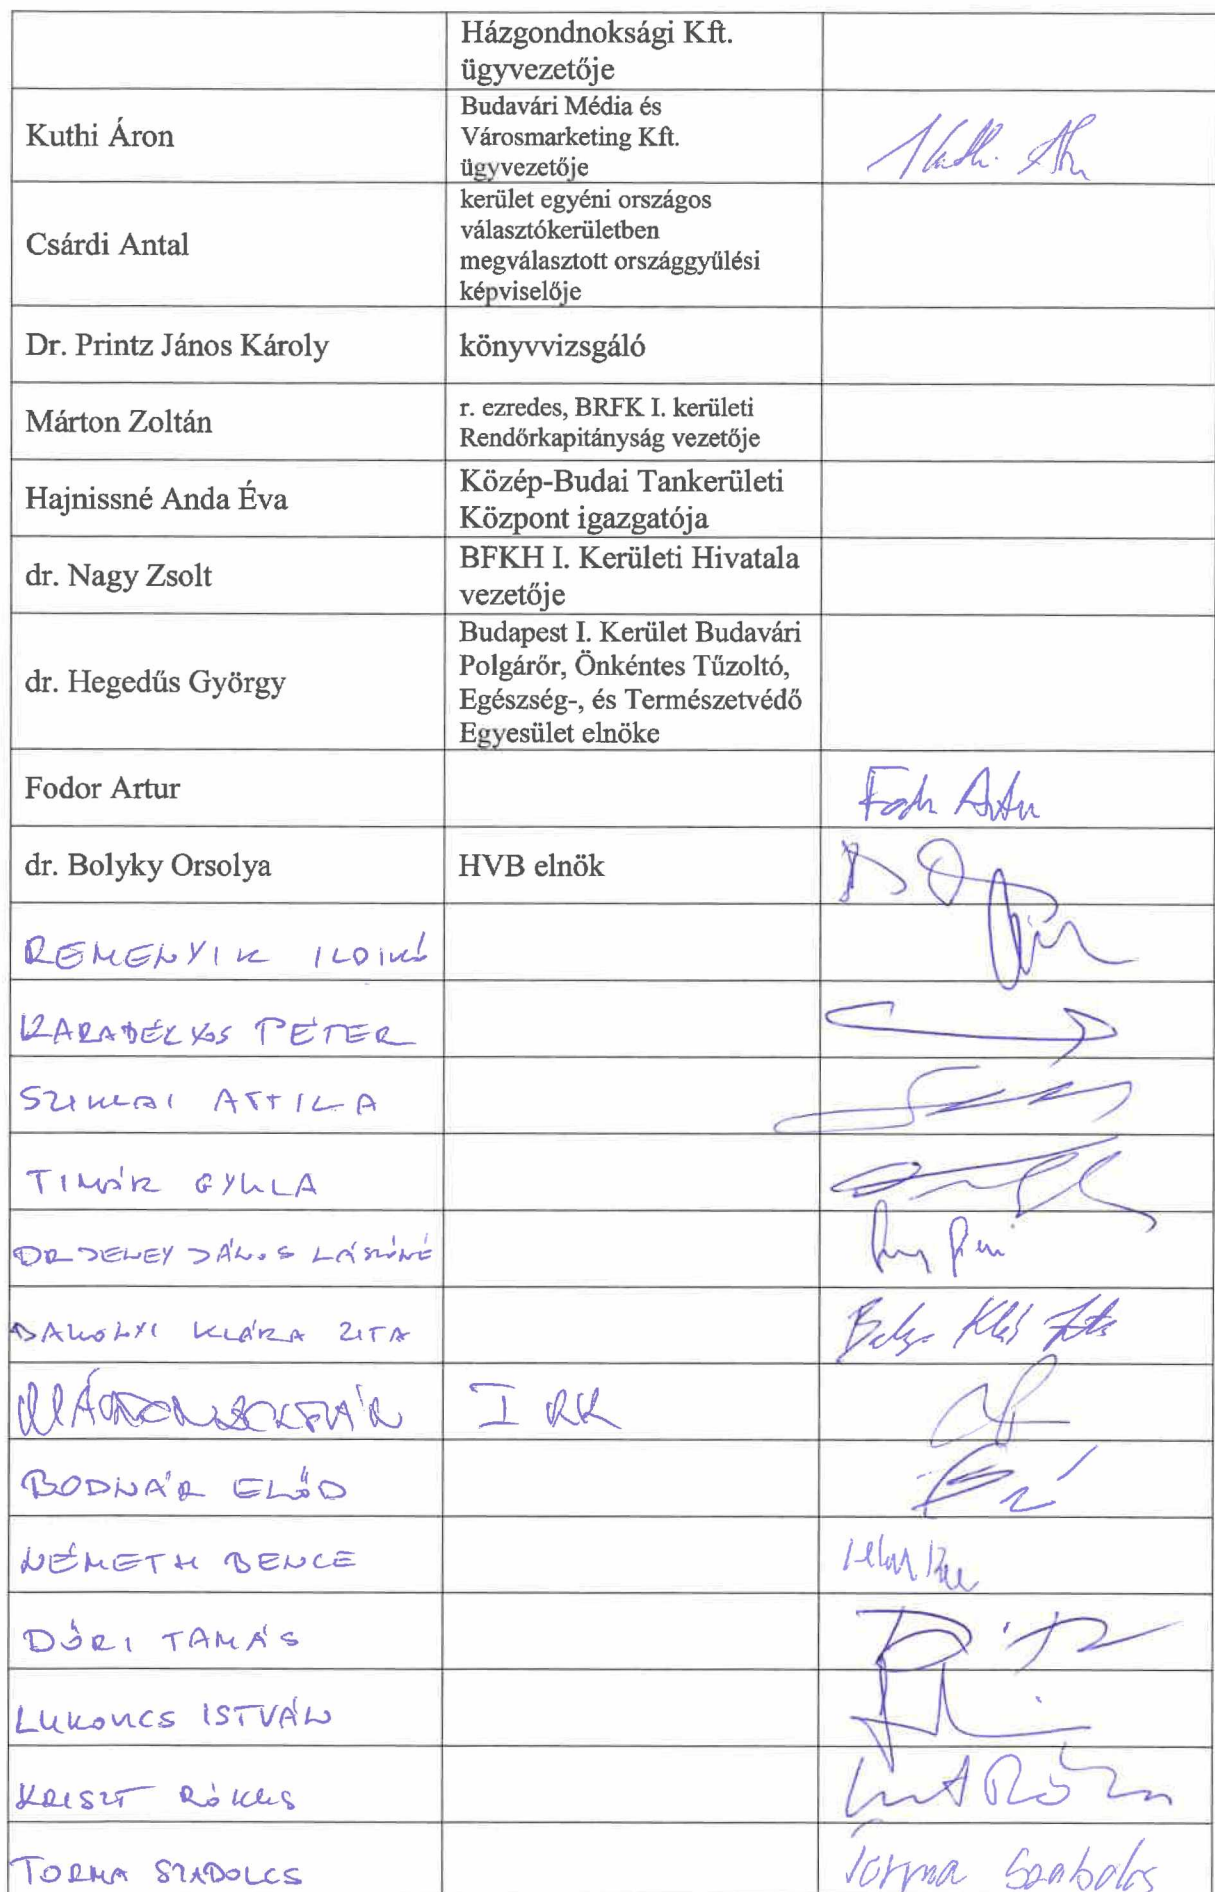 Házgondnoksági Kft.
ügyvezetője
Kuthi Áron
Budavári Média és
Városmarketing Kft.
ügyvezetője
Csárdi Antal
kerület egyéni országos
választókerületben
megválasztott országgyűlési
képviselője
Dr. Printz János Károly
könyvvizsgáló
Márton Zoltán
r. ezredes, BRFK I. kerületi
Rendőrkapitányság vezetője
Hajnissné Anda Éva
Közép-Budai Tankerületi
Központ igazgatója
dr. Nagy Zsolt
BFKH I. Kerületi Hivatala
vezetője
dr. Hegedűs György
Budapest I. Kerület Budavári
Polgárőr, Önkéntes Tűzoltó,
Egészség-, és Természetvédő
Egyesület elnöke
Fodor Artur
dr. Bolyky Orsolya
HVB elnök
REMENYIK ILDIKÓ
KARADÉLYOS PÉTER
SZIKLAI ATTILA
TIMÁR GYULA
DR JENEY JÁNOS LÁSZLÓNÉ
KLÁRA ZITA
I RK
BODNÁR ELŐD
NÉMETH BENCE
DŐRI TAMÁS
LUKOVICS ISTVÁN
KRISZT
TORMA SZABOLCS
Torma Szabolcs